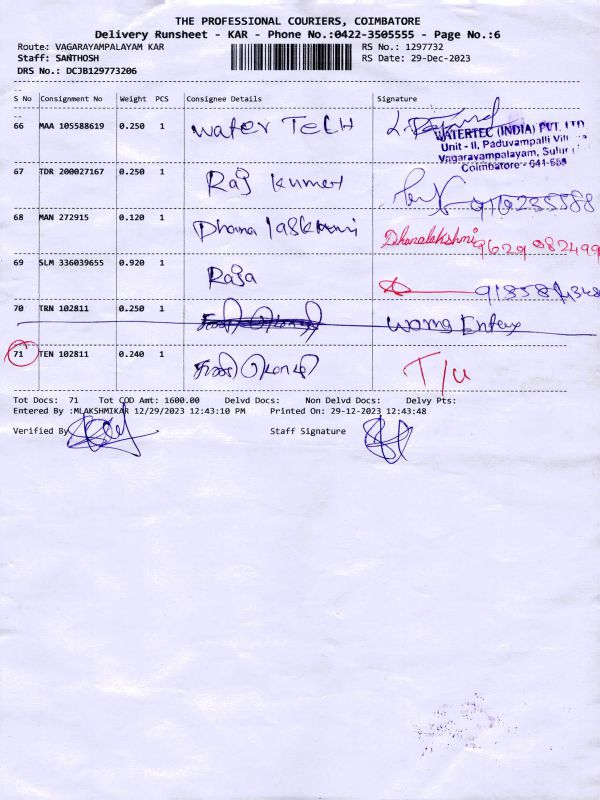 THE PROFESSIONAL COURIERS, COIMBATORE
Delivery Runsheet - KAR - Phone No.:0422-3505555 - Page No.:6
Route: VAGARAYAMPALAYAM KAR RS No.: 1297732
Staff: SANTHOSH RS Date: 29-Dec-2023
DRS No.: DCJB129773206
S No Consignment No Weight PCS Consignee Details Signature
66 MAA 105588619 0.250 1 Water Tech
WATERTEC (INDIA) PVT. LTD
Unit - II, Paduvampalli
Vagarayampalayam, Sulur
Coimbatore - 641-659
67 TDR 200027167 0.250 1 Raj Kumar
68 MAN 272915 0.120 1 Dhanalakshmi 9629082499
69 SLM 336039655 0.920 1 Raja
70 TRN 102811 0.250 1
71 TEN 102811 0.240 1 T/u
Tot Docs: 71 Tot COD Amt: 1600.00 Delvd Docs: Non Delvd Docs: Delvy Pts:
Entered By :MLAKSHMIKAR 12/29/2023 12:43:10 PM Printed On: 29-12-2023 12:43:48
Verified By Staff Signature